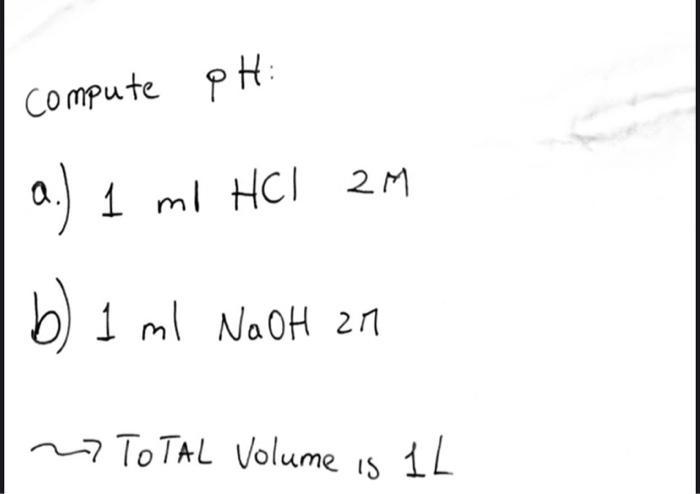 Compute pH:
a.) 1 ml HCl 2M
b) 1 ml NaOH 2M
~> TOTAL Volume is 1L